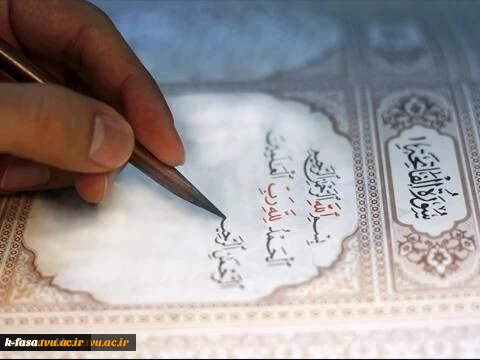 سُورَةُ الفَاتِحَةِ
بِسْمِ اللَّهِ الرَّحْمَٰنِ الرَّحِيمِ
الْحَمْدُ لِلَّهِ رَبِّ الْعَٰلَمِينَ
الرَّحْمَٰنِ الرَّحِيمِ
k-fasa.tvu.ac.ir